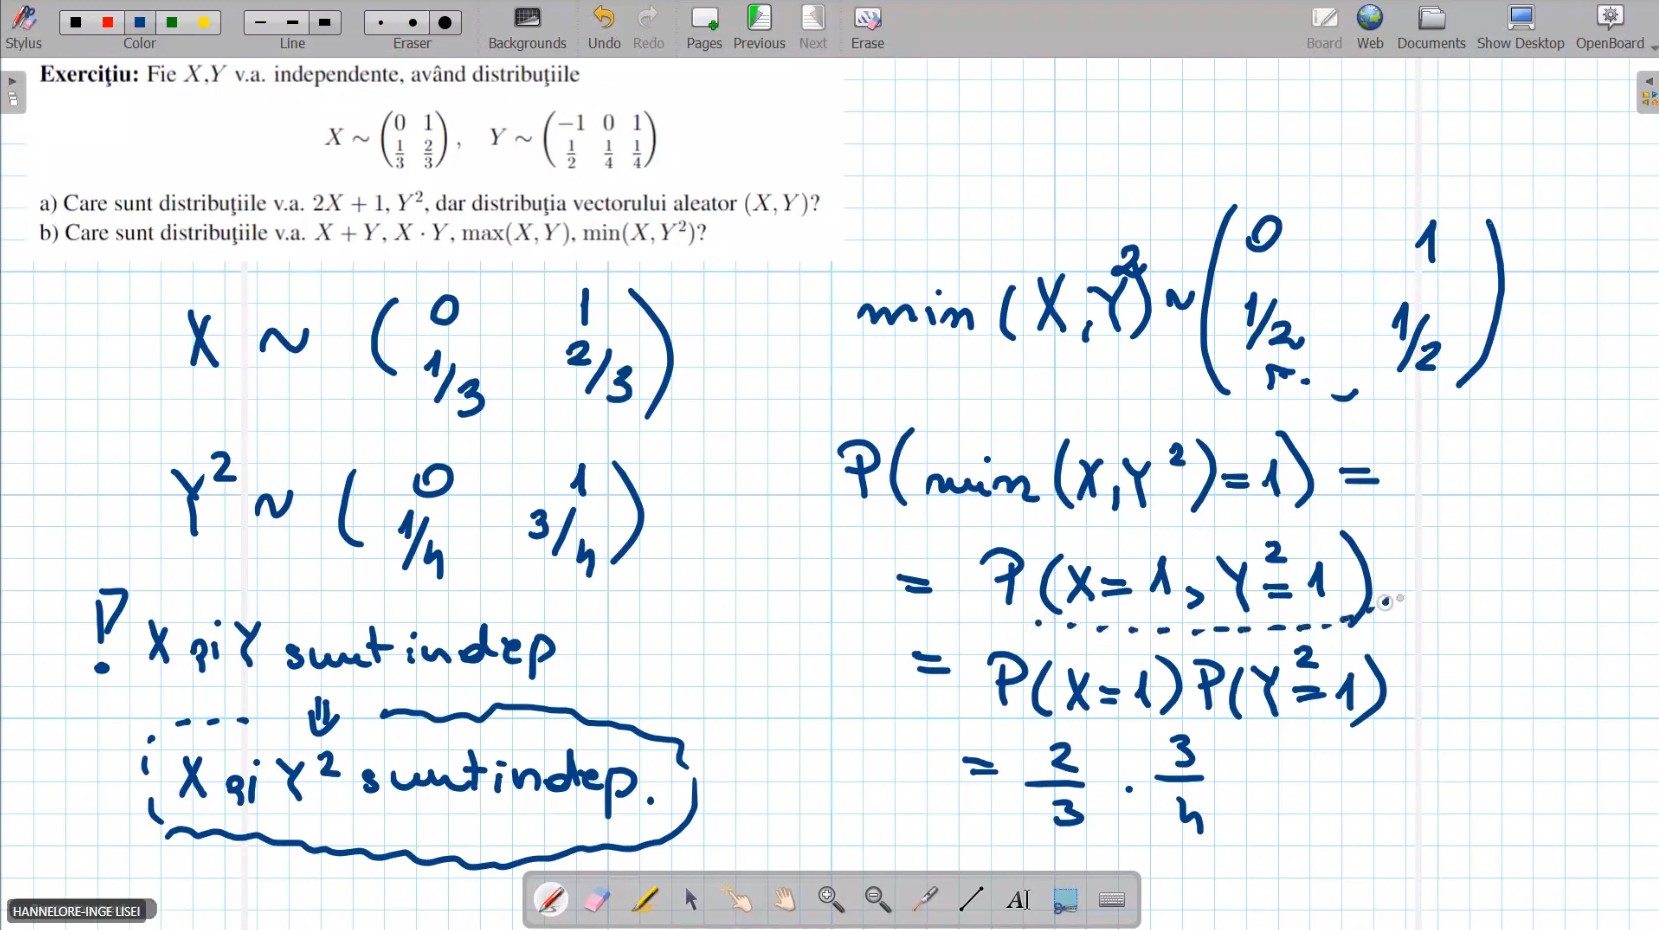 Stylus Color Line Eraser Backgrounds Undo Redo Pages Previous Next Erase Board Web Documents Show Desktop OpenBoard
Exerciţiu: Fie X,Y v.a. independente, având distribuţiile
X ~ (0 1; 1/3 2/3), Y ~ (−1 0 1; 1/2 1/4 1/4)
a) Care sunt distribuţiile v.a. 2X + 1, Y², dar distribuţia vectorului aleator (X,Y)?
b) Care sunt distribuţiile v.a. X + Y, X · Y, max(X,Y), min(X,Y²)?
X ~ (0 1; 1/3 2/3)
Y² ~ (0 1; 1/4 3/4)
! X şi Y sunt indep
⇓
X şi Y² sunt indep.
min(X,Y²) ~ (0 1; 1/2 1/2)
P(min(X,Y²)=1) =
= P(X=1, Y²=1)
= P(X=1)P(Y²=1)
= 2/3 · 3/4
HANNELORE-INGE LISEI